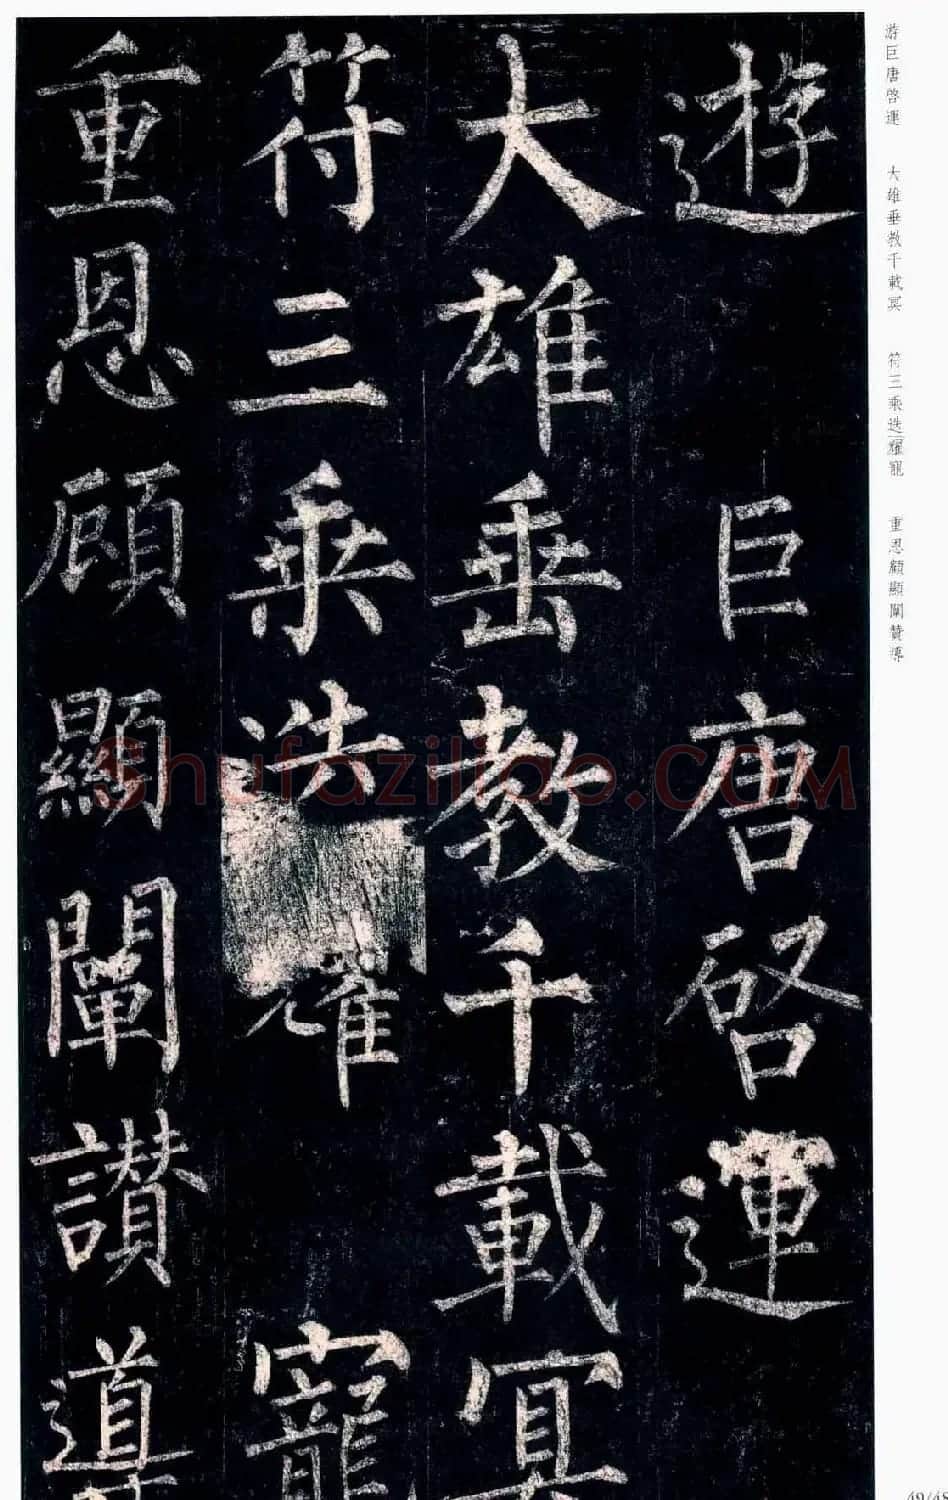 遊 巨唐啓運
大雄垂教千載冥
符三乘迭耀 寵
重恩顧顯闡讃導
游巨唐啓運 大雄垂教千載冥 符三乘迭耀寵 重恩顧顯闡贊導
Shufaziliao.COM
49/48